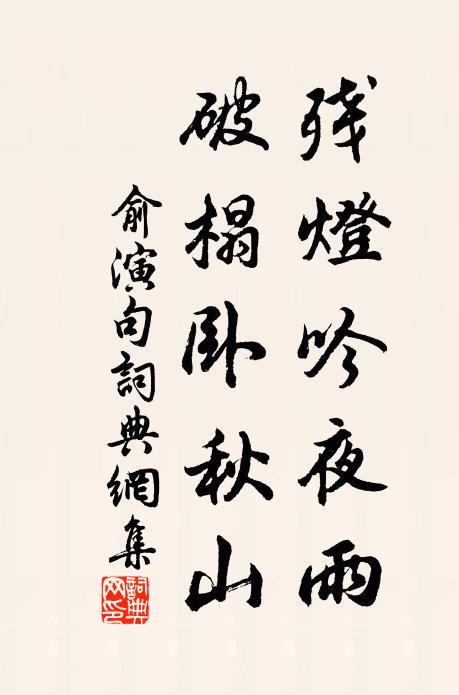 残燈吟夜雨
破榻卧秋山
俞演句詞典網集
詞典網印